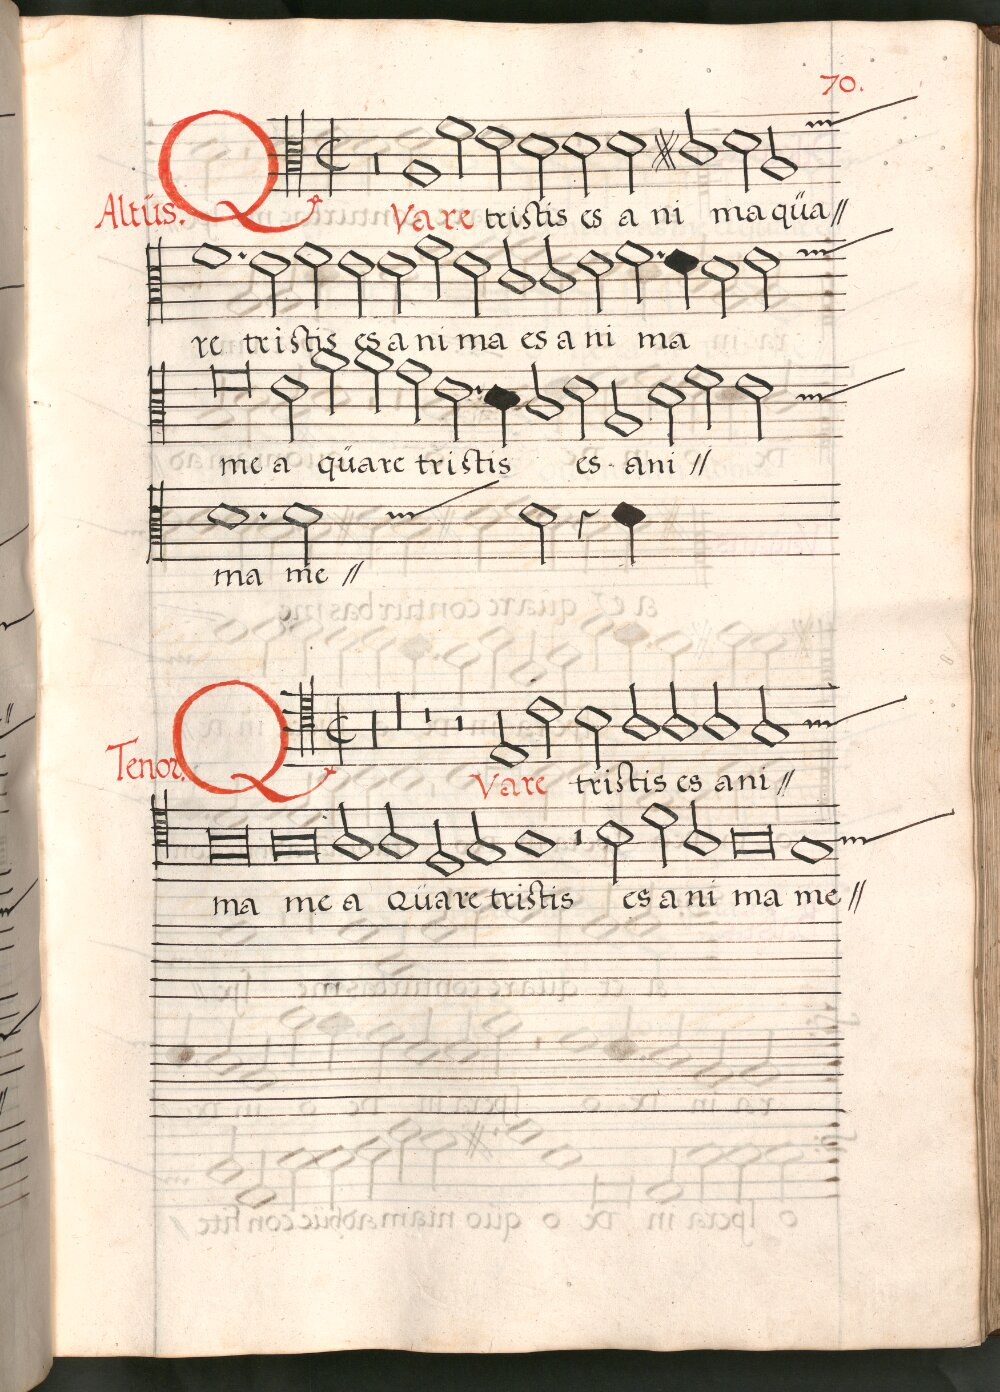 70.
Altüs. QVare tristis es a ni ma qüa//
re tristis es a ni ma es a ni ma
me a qüare tristis es ani //
ma me //
Tenor. QVare tristis es ani //
ma me a Qüare tristis es a ni ma me //